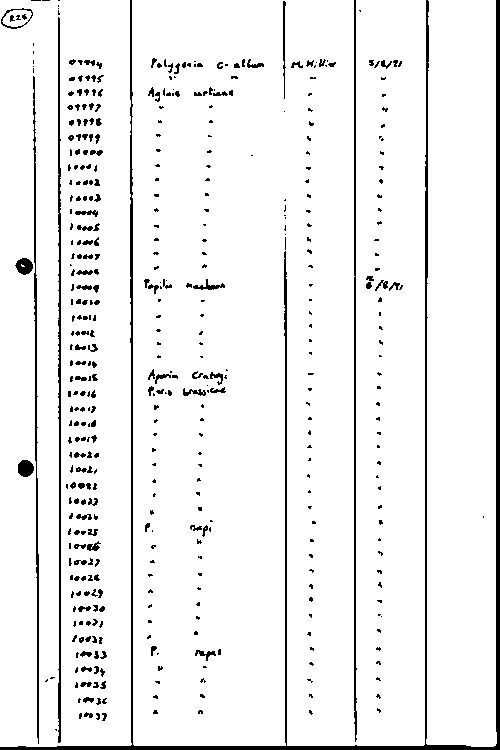 225
09994 Polygonia C-album M. Hillier 5/8/71
09995 " " " "
09996 Aglais urticae " "
09997 " " " "
09998 " " " "
09999 " " " "
10000 " " " "
10001 " " " "
10002 " " " "
10003 " " " "
10004 " " " "
10005 " " " "
10006 " " " "
10007 " " " "
10008 " " " "
10009 Papilio machaon " 6/8/71
10010 " " " "
10011 " " " "
10012 " " " "
10013 " " " "
10014 " " " "
10015 Aporia Crataegi " "
10016 Pieris brassicae " "
10017 " " " "
10018 " " " "
10019 " " " "
10020 " " " "
10021 " " " "
10022 " " " "
10023 " " " "
10024 " " " "
10025 P. napi " "
10026 " " " "
10027 " " " "
10028 " " " "
10029 " " " "
10030 " " " "
10031 " " " "
10032 " " " "
10033 P. rapae " "
10034 " " " "
10035 " " " "
10036 " " " "
10037 " " " "